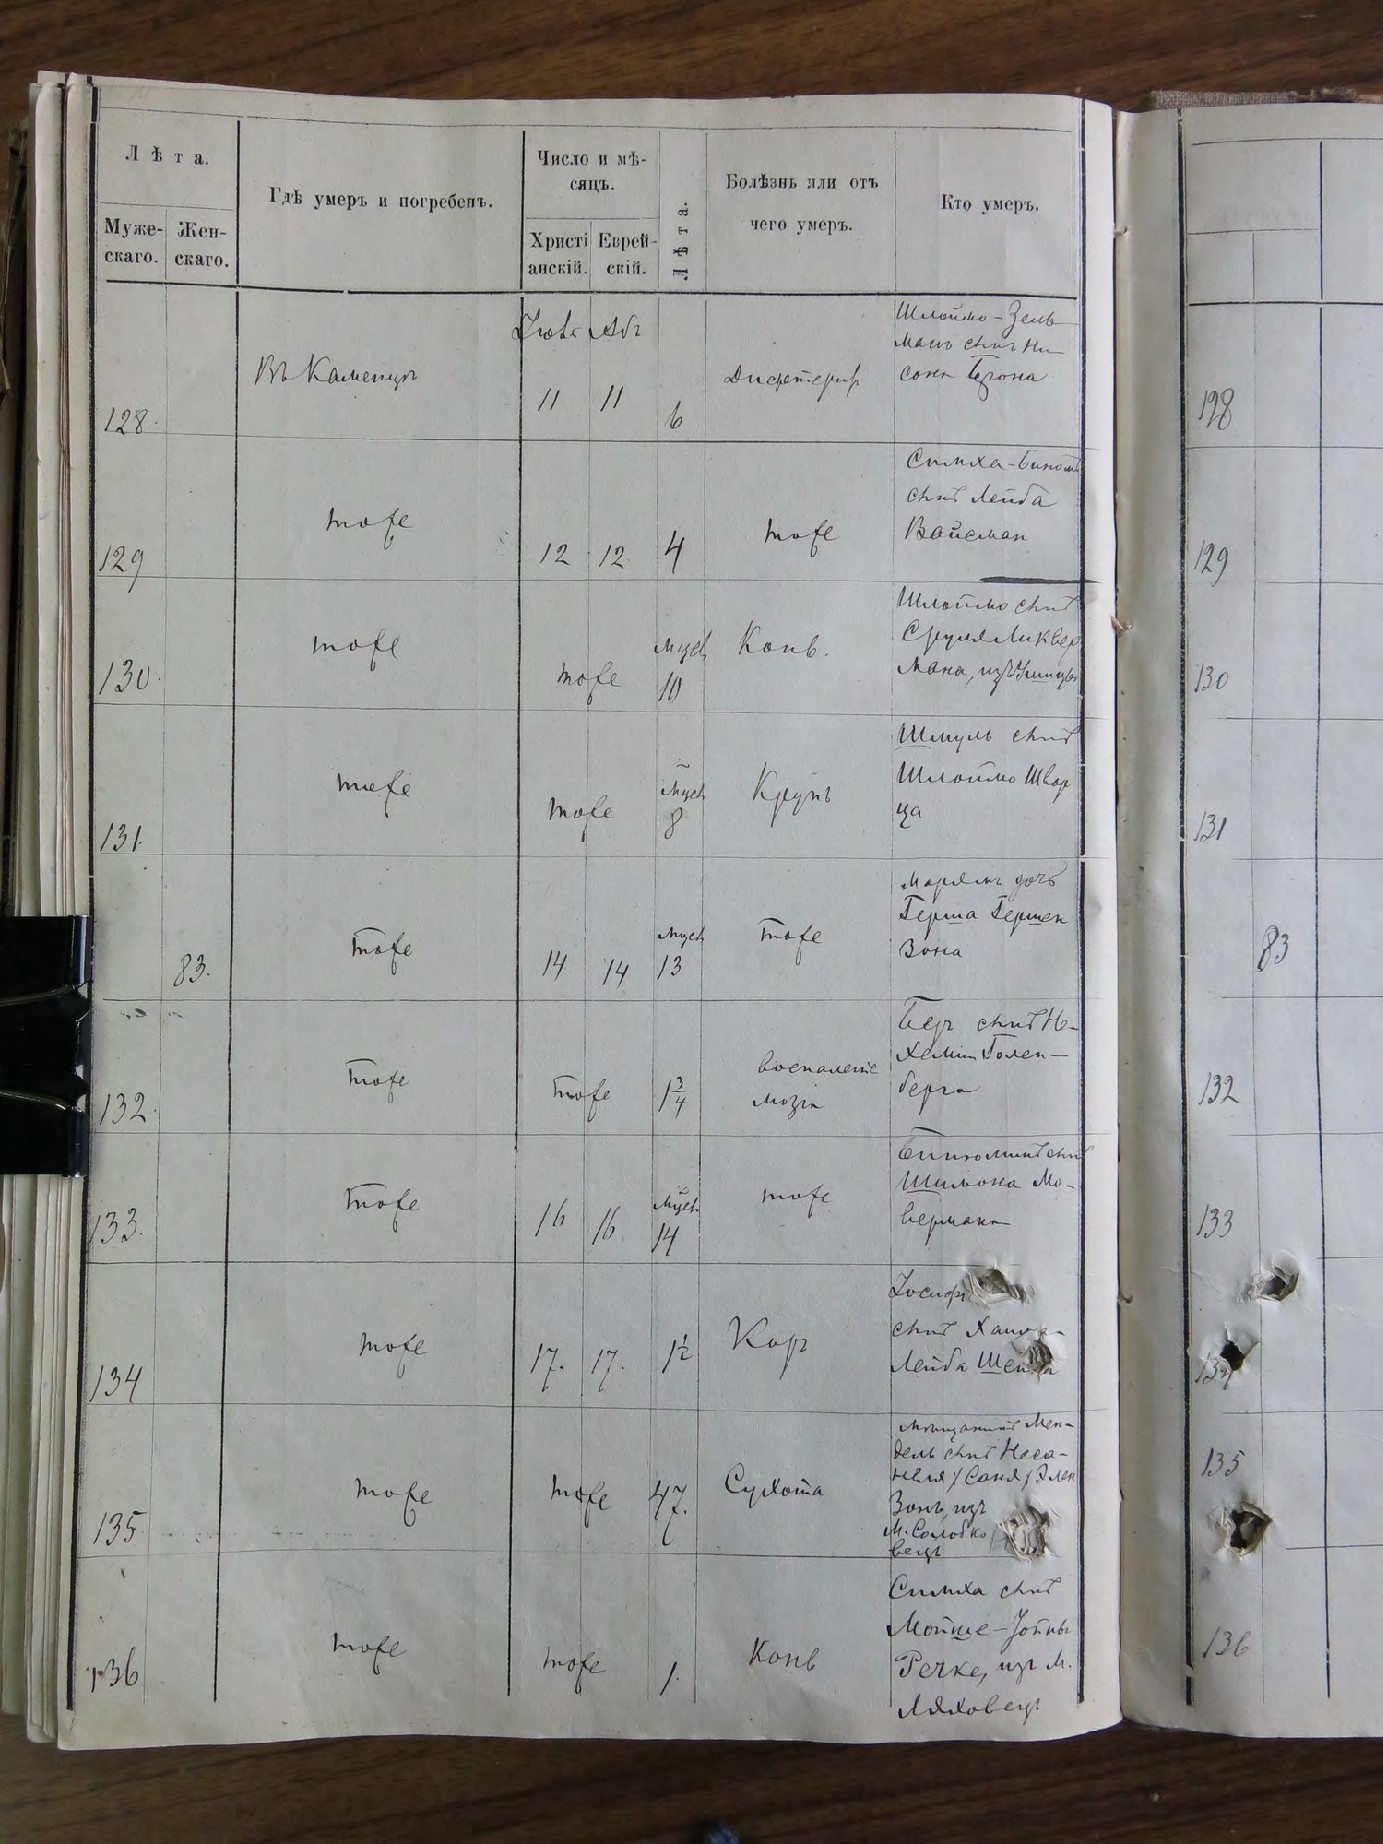 Лѣта.
Муже-
скаго.
Жен-
скаго.
Гдѣ умеръ и погребенъ.
Число и мѣ-
сяцъ.
Христі
анскій.
Еврей-
скій.
Лѣта.
Болѣзнь или отъ
чего умеръ.
Кто умеръ.
128.
Въ Каменцѣ
11
11
6
Дифтеритъ
Шлоймо-Зель
манъ сынъ Ни
сона
128
129
тоже
12
12
4
тоже
Симха-
сынъ Лейба
Вайсман
129
130.
тоже
тоже
Мцсв
10
Конв.
Шлоймо сынъ
Сруля Ликвер
мана, изъ
130
131.
тоже
тоже
Мцсв
8
Крупъ
Шмуль сынъ
Шлоймо Швар
ца
131
83.
тоже
14
14
Мцсв
13
тоже
Марямъ дочь
Герша Гершен
зона
83
132.
тоже
тоже
1 3/4
воспаленіе
мозга
Беръ сынъ Не-
хеміи Голен-
берга
132
133.
тоже
16
16
Мцсв
14
тоже
сынъ
Шимона Мо-
вермана
133
134
тоже
17.
17.
1 1/2
Кор
Іосифъ
сынъ
Лейба
134
135.
тоже
тоже
47.
Сухота
мѣщанинъ Мен-
дель сынъ Наса-
неля /Саня/ Элен
зонъ, изъ
м. Солобко
вецъ
135
136
тоже
тоже
1.
Конв
Симха сынъ
Мойше-Іойны
Речке, изъ м.
Ляховец
136